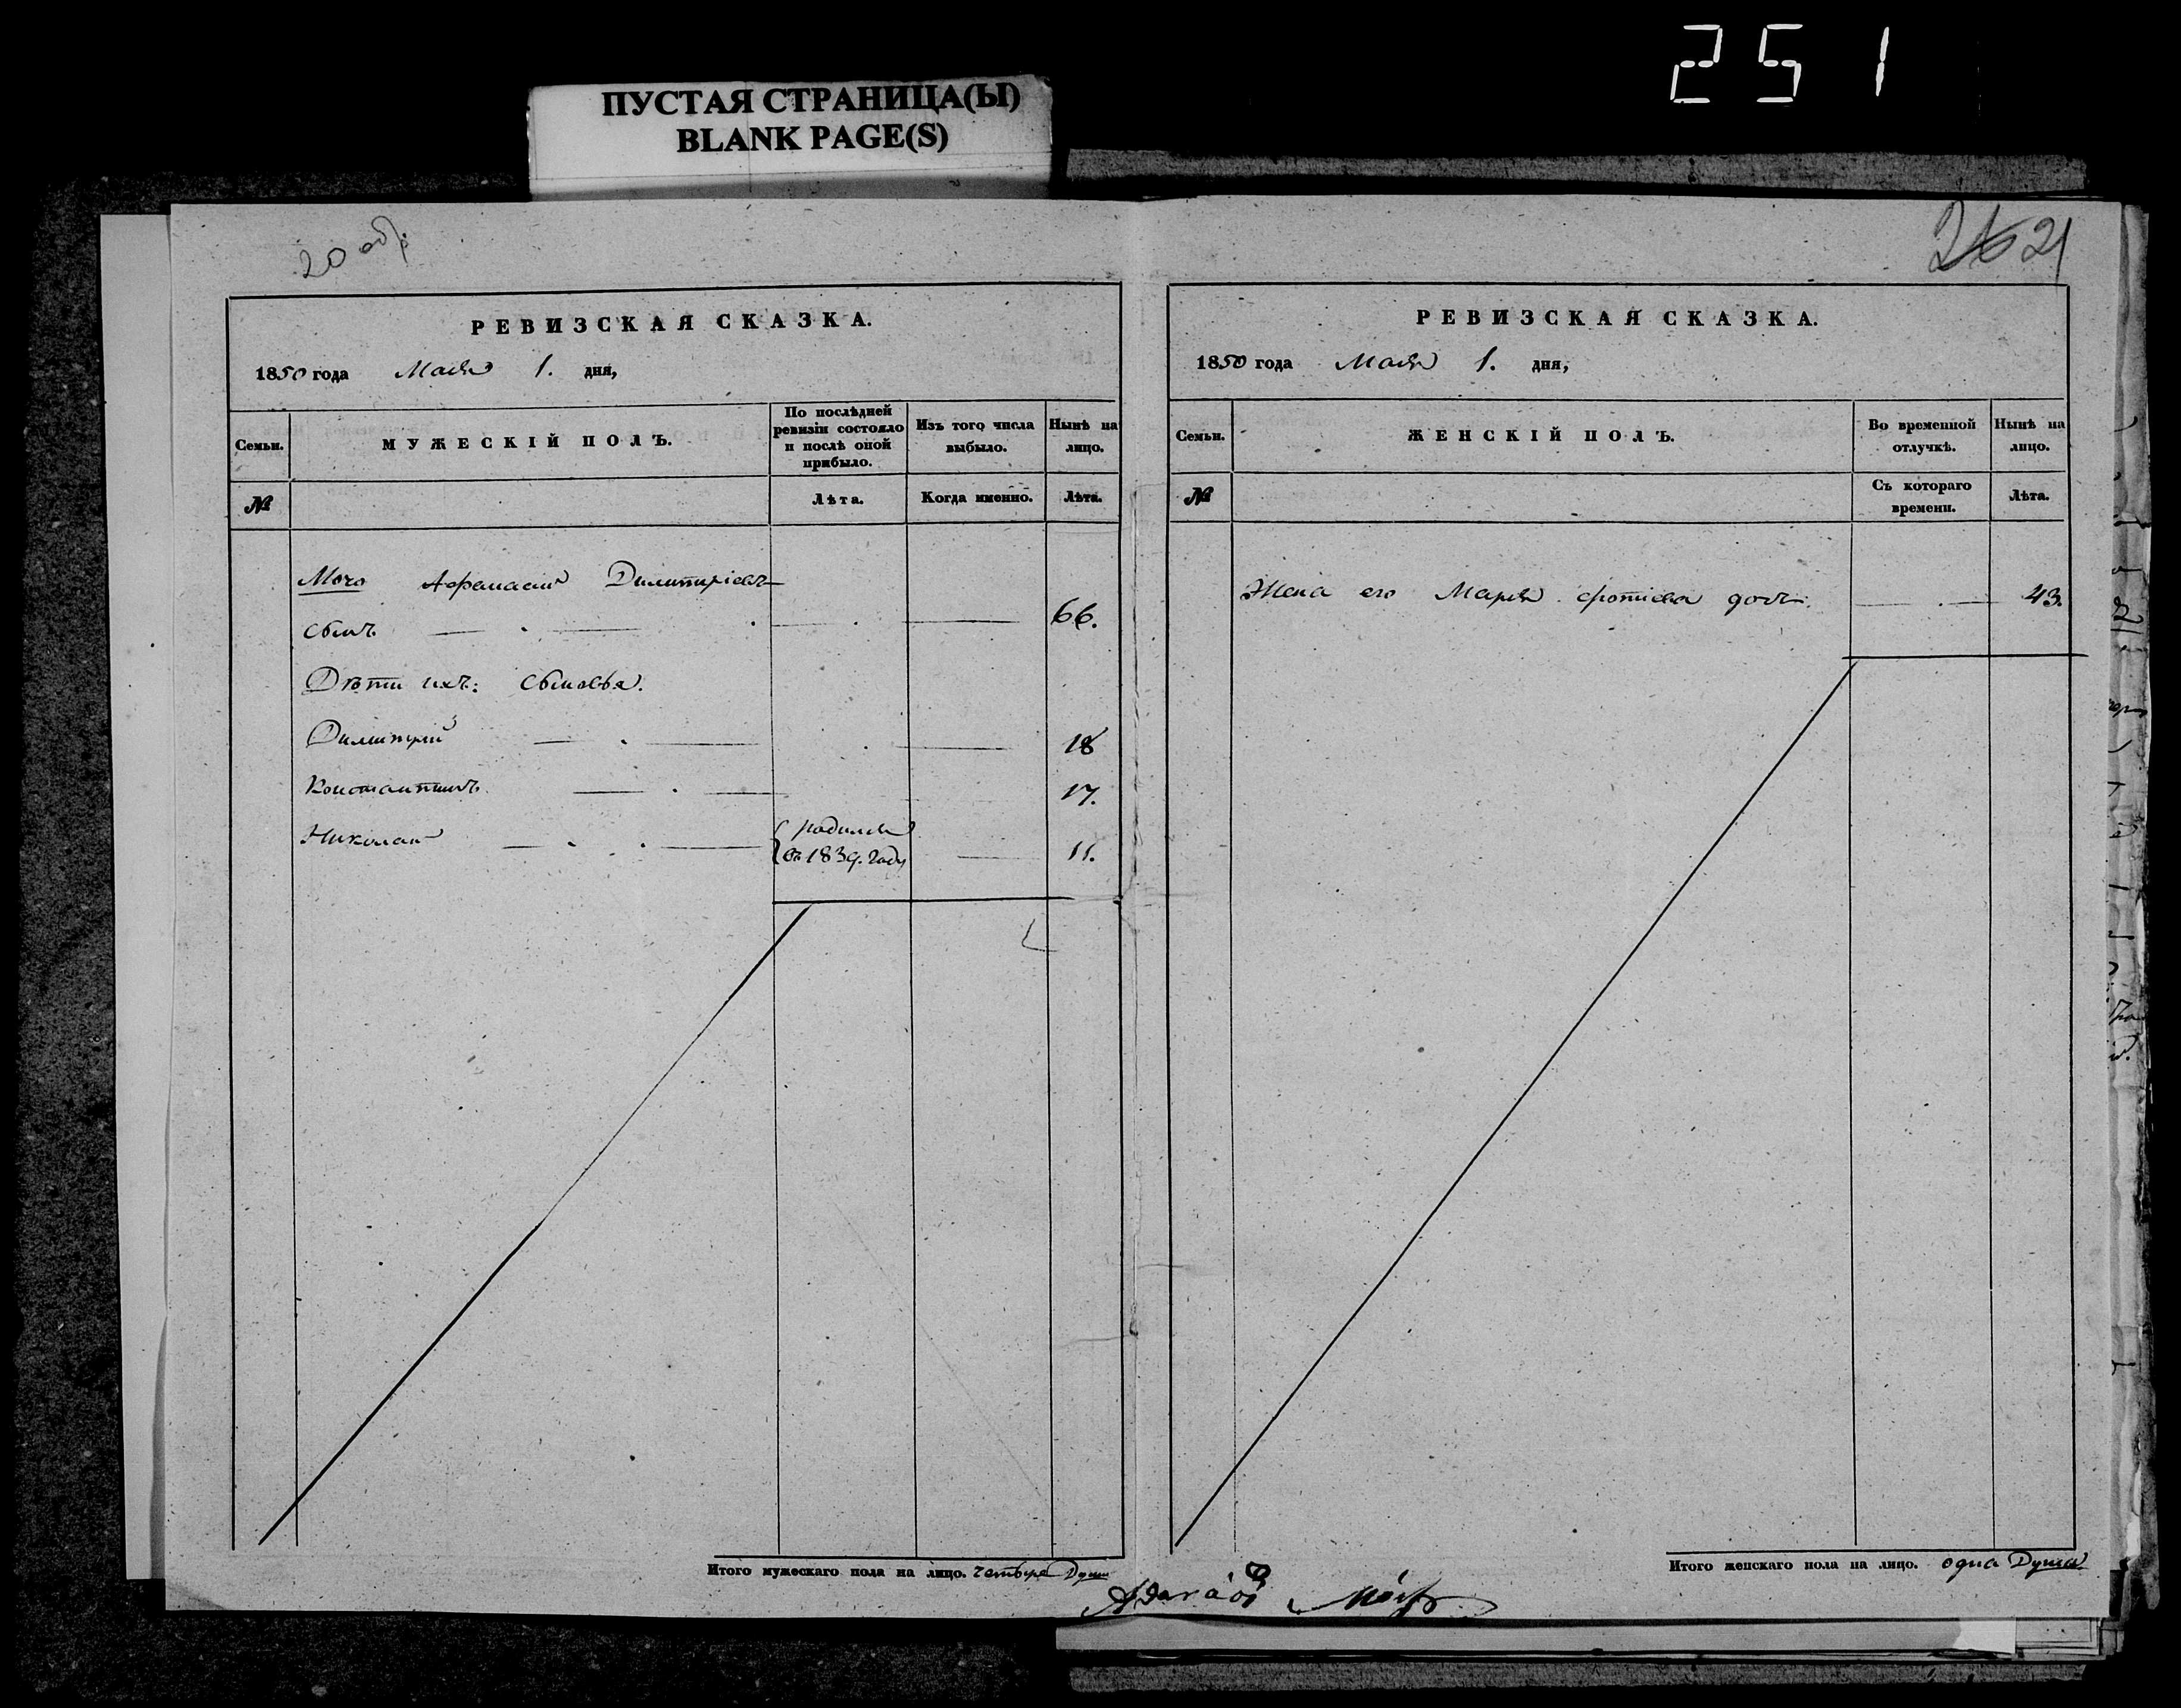 251
ПУСТАЯ СТРАНИЦА(Ы)
BLANK PAGE(S)
20 об:
РЕВИЗСКАЯ СКАЗКА.
1850 года Мая 1. дня,
Семьи. МУЖЕСКІЙ ПОЛЪ. По послѣдней ревизіи состояло и послѣ оной прибыло. Изъ того числа выбыло. Нынѣ на лицо.
№ Лѣта. Когда именно. Лѣта.
Мочо Афанасій Димитріевъ
сынъ 66.
Дѣти ихъ: сыновья.
Димитрій 18
Константинъ 17.
Николай родился въ 1839. году 11.
Итого мужескаго пола на лицо. четыре Души
21
РЕВИЗСКАЯ СКАЗКА.
1850 года Мая 1. дня,
Семьи. ЖЕНСКІЙ ПОЛЪ. Во временной отлучкѣ. Нынѣ на лицо.
№ Съ котораго времени. Лѣта.
Жена его Марья фотіева дочь. 43.
Итого женскаго пола на лицо. одна Душа.